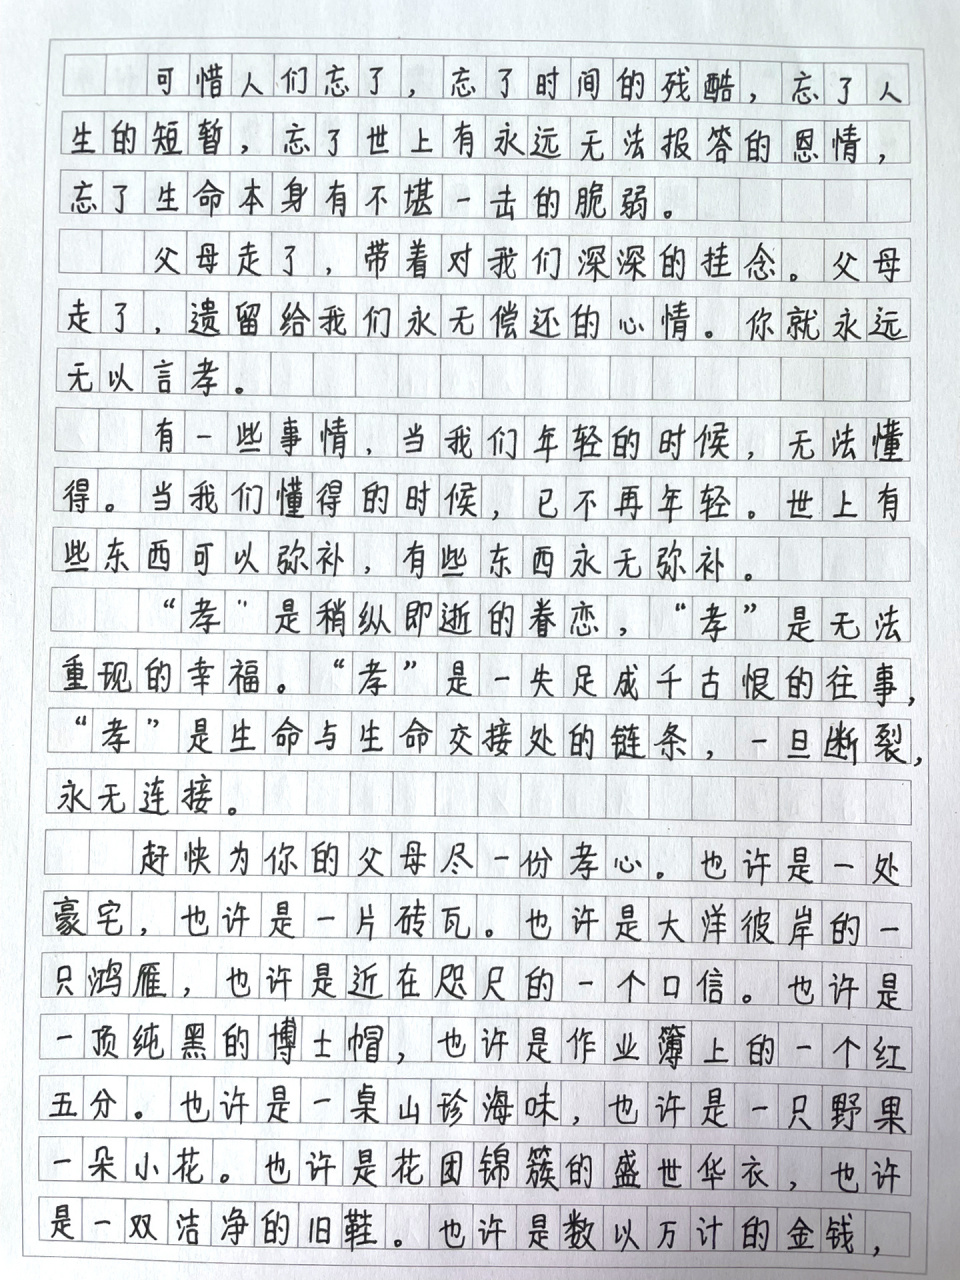 可惜人们忘了，忘了时间的残酷，忘了人
生的短暂，忘了世上有永远无法报答的恩情，
忘了生命本身有不堪一击的脆弱。
父母走了，带着对我们深深的挂念。父母
走了，遗留给我们永无偿还的心情。你就永远
无以言孝。
有一些事情，当我们年轻的时候，无法懂
得。当我们懂得的时候，已不再年轻。世上有
些东西可以弥补，有些东西永无弥补。
“孝”是稍纵即逝的眷恋，“孝”是无法
重现的幸福。“孝”是一失足成千古恨的往事，
“孝”是生命与生命交接处的链条，一旦断裂，
永无连接。
赶快为你的父母尽一份孝心。也许是一处
豪宅，也许是一片砖瓦。也许是大洋彼岸的一
只鸿雁，也许是近在咫尺的一个口信。也许是
一顶纯黑的博士帽，也许是作业簿上的一个红
五分。也许是一桌山珍海味，也许是一只野果
一朵小花。也许是花团锦簇的盛世华衣，也许
是一双洁净的旧鞋。也许是数以万计的金钱，